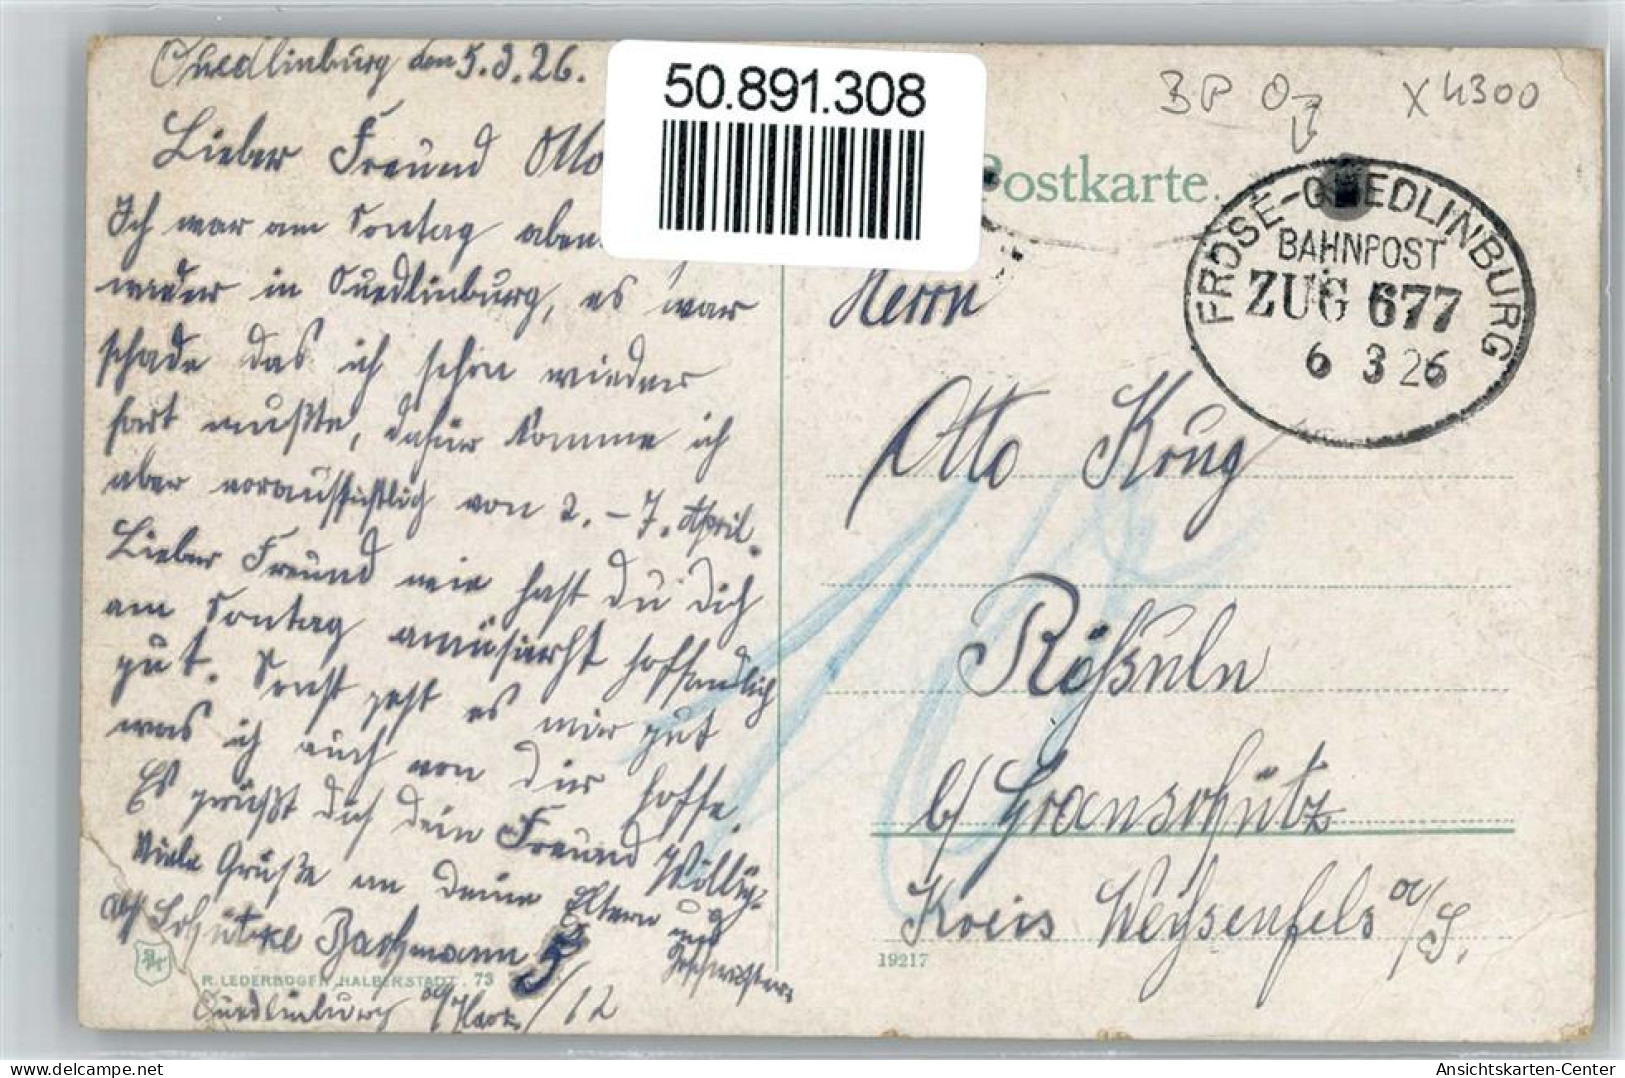 Quedlinburg den 5.3.26.
Lieber Freund Otto
Ich war am Sontag aben
wieder in Quedlinburg, es war
schade das ich schon wieder
fort mußte, dafür komme ich
aber voraussichtlich von 2. – 7. April.
Lieber Freund wie hast du dich
am Sontag amüsierht hoffendlich
gut. Sonst geht es mir gut
was ich auch von dir hoffe.
Es grüßt dich dein Freund Willy
Viele Grüße an deine Eltern und
Geschwister
Abs Schütze Bachmann 5
Quedlinburg a/Harz /12
R. LEDERBOGEN, HALBERSTADT. 73
50.891.308
BP Oz
X4300
Postkarte.
FROSE-QUEDLINBURG
BAHNPOST
ZUG 677
6 3 26
Herrn
Otto Krug
Rößuln
b/ Granschütz
Kreis Weysenfels a/S.
19217
www.oldthing.de
Ansichtskarten-Center